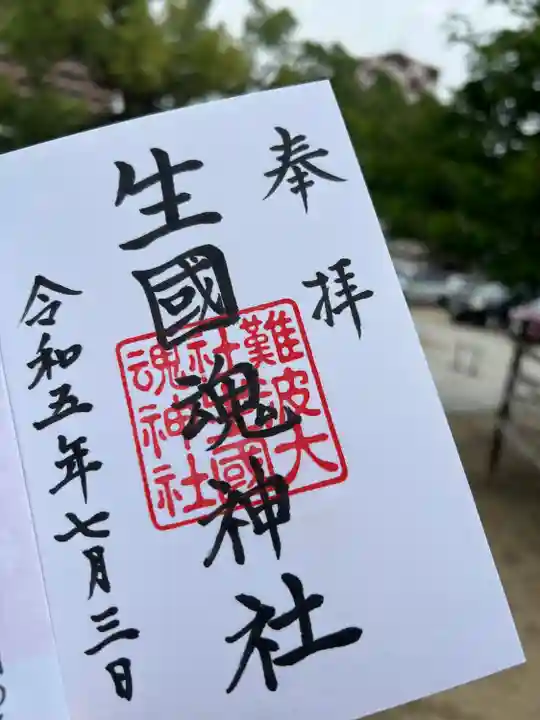 奉拝
生國魂神社
難波大
社生國
魂神社
令和五年七月三日